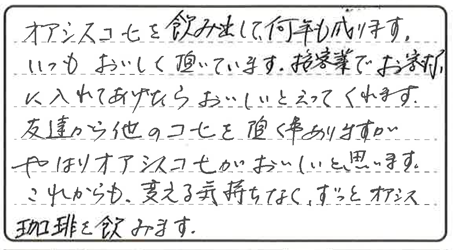 オアシスコヒを飲み出して、何年も成ります。
いつもおいしく頂いています。接客業でお客様
に入れてあげたらおいしいと云ってくれます。
友達から他のコヒを頂く事ありますが
やはりオアシスコヒがおいしいと思います。
これからも、変える気持ちなく、ずっとオアシス
珈琲を飲みます。